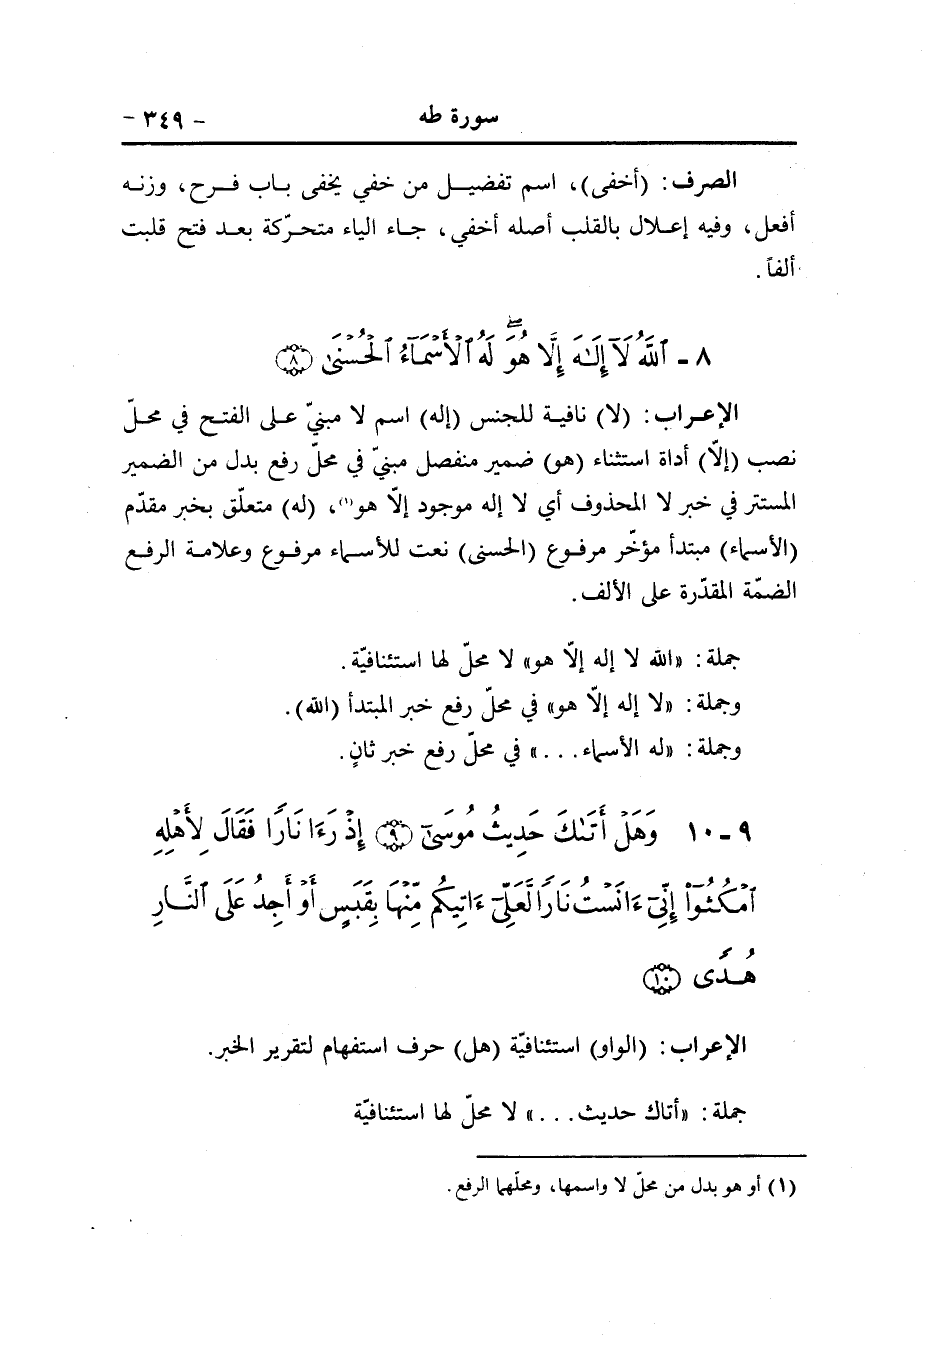 سورة طه - ٣٤٩ -
الصرف: (أخفى)، اسم تفضيـل من خفي يخفى بـاب فـرح، وزنـه
أفعل، وفيه إعـلال بالقلب أصله أخفي، جـاء الياء متحـرّكة بعـد فتح قلبت
ألفاً.
٨ - ٱللَّهُ لَآ إِلَـٰهَ إِلَّا هُوَ ۖ لَهُ ٱلْأَسْمَآءُ ٱلْحُسْنَىٰ ﴿٨﴾
الإعـراب: (لا) نافيـة للجنس (إله) اسم لا مبنيّ عـلى الفتـح في محـلّ
نصب (إلّا) أداة استثناء (هو) ضمير منفصل مبنيّ في محلّ رفع بدل من الضمير
المستتر في خبر لا المحذوف أي لا إله موجود إلّا هو(١)، (له) متعلّق بخبر مقدّم
(الأسماء) مبتدأ مؤخّر مرفـوع (الحسنى) نعت للأسـماء مرفـوع وعلامـة الرفـع
الضمّة المقدّرة على الألف.
جملة: «الله لا إله إلّا هو» لا محلّ لها استئنافيّة.
وجملة: «لا إله إلّا هو» في محلّ رفع خبر المبتدأ (الله).
وجملة: «له الأسماء...» في محلّ رفع خبر ثانٍ.
٩ - ١٠ وَهَلْ أَتَىٰكَ حَدِيثُ مُوسَىٰٓ ﴿٩﴾ إِذْ رَءَا نَارًا فَقَالَ لِأَهْلِهِ
ٱمْكُثُوٓا۟ إِنِّىٓ ءَانَسْتُ نَارًا لَّعَلِّىٓ ءَاتِيكُم مِّنْهَا بِقَبَسٍ أَوْ أَجِدُ عَلَى ٱلنَّـارِ
هُـدًى ﴿١٠﴾
الإعراب: (الواو) استئنافيّة (هل) حرف استفهام لتقرير الخبر.
جملة: «أتاك حديث...» لا محلّ لها استئنافيّة
(١) أو هو بدل من محلّ لا واسمها، ومحلّهما الرفع.